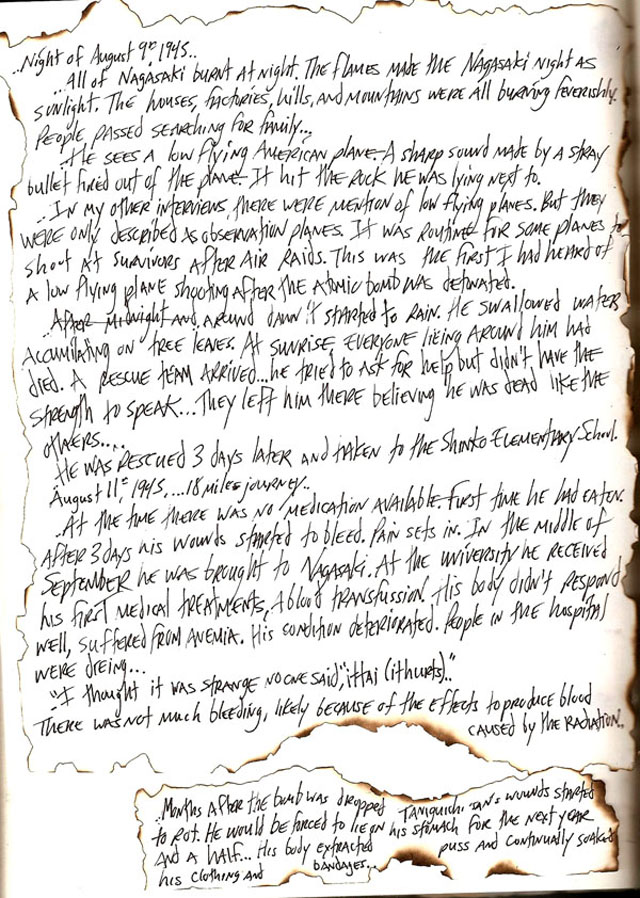 ..Night of August 9th, 1945..
..All of Nagasaki burnt at night. The flames made the Nagasaki night as
sunlight. The houses, factories, hills, and mountains were all burning feverishly.
People passed searching for family...
..He sees a low flying American plane. A sharp sound made by a stray
bullet fired out of the plane. It hit the rock he was lying next to.
..In my other interviews, there were mention of low flying planes. But they
were only described as observation planes. It was routine for some planes to
shoot at survivors after air raids. This was the first I had heard of
a low flying plane shooting after the atomic bomb was detonated.
..After midnight and around dawn it started to rain. He swallowed water
accumilating on tree leaves. At sunrise, everyone lieing around him had
died. A rescue team arrived...he tried to ask for help but didn't have the
strength to speak... They left him there believing he was dead like the
others....
He was rescued 3 days later and taken to the Shinko Elementary School.
August 11th, 1945, ...18 miles journey..
..At the time there was no medication available. First time he had eaten.
After 3 days his wounds started to bleed. Pain sets in. In the middle of
September he was brought to Nagasaki. At the university he received
his first medical treatments, a blood transfussion. His body didn't respond
well, suffered from anemia. His condition deteriorated. People in the hospital
were dieing...
"I thought it was strange no one said, "ittai (it hurts).."
There was not much bleeding, likely because of the effects to produce blood
caused by the radiation..
..Months after the bomb was dropped Taniguchi san's wounds started
to rot. He would be forced to lie on his stomach for the next year
and a half... His body extracted puss and continually soaked
his clothing and bandages...